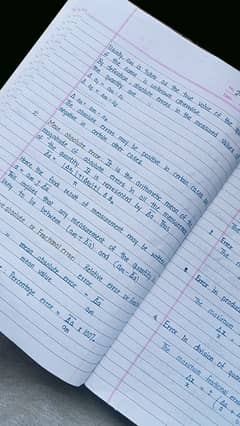 Usually, am is taken as the true value of the
if the same is unknown otherwise.
By definition, absolute errors in the measured value
the quantity are
Δa1 = am - a1
Δa2 = am - a2
Δan = am - an
The absolute errors may be positive in certain cases and
negative in certain other cases.
Mean absolute error: It is the arithmetic mean of
magnitude of absolute errors in all the measurements
of the quantity. It is represented by Δa. Thus
Hence the final result of measurement may be written
a = am ± Δa
This implies that any measurement of the quantity is
likely to be between (am + Δa) and (am - Δa)
or Fractional error: Relative error or
= mean absolute error / mean value = Δa / am
Percentage error = Δa / am × 100%
1. Error
The
3. Error in produc
The maximum
4. Error in division of
The maximum fractional